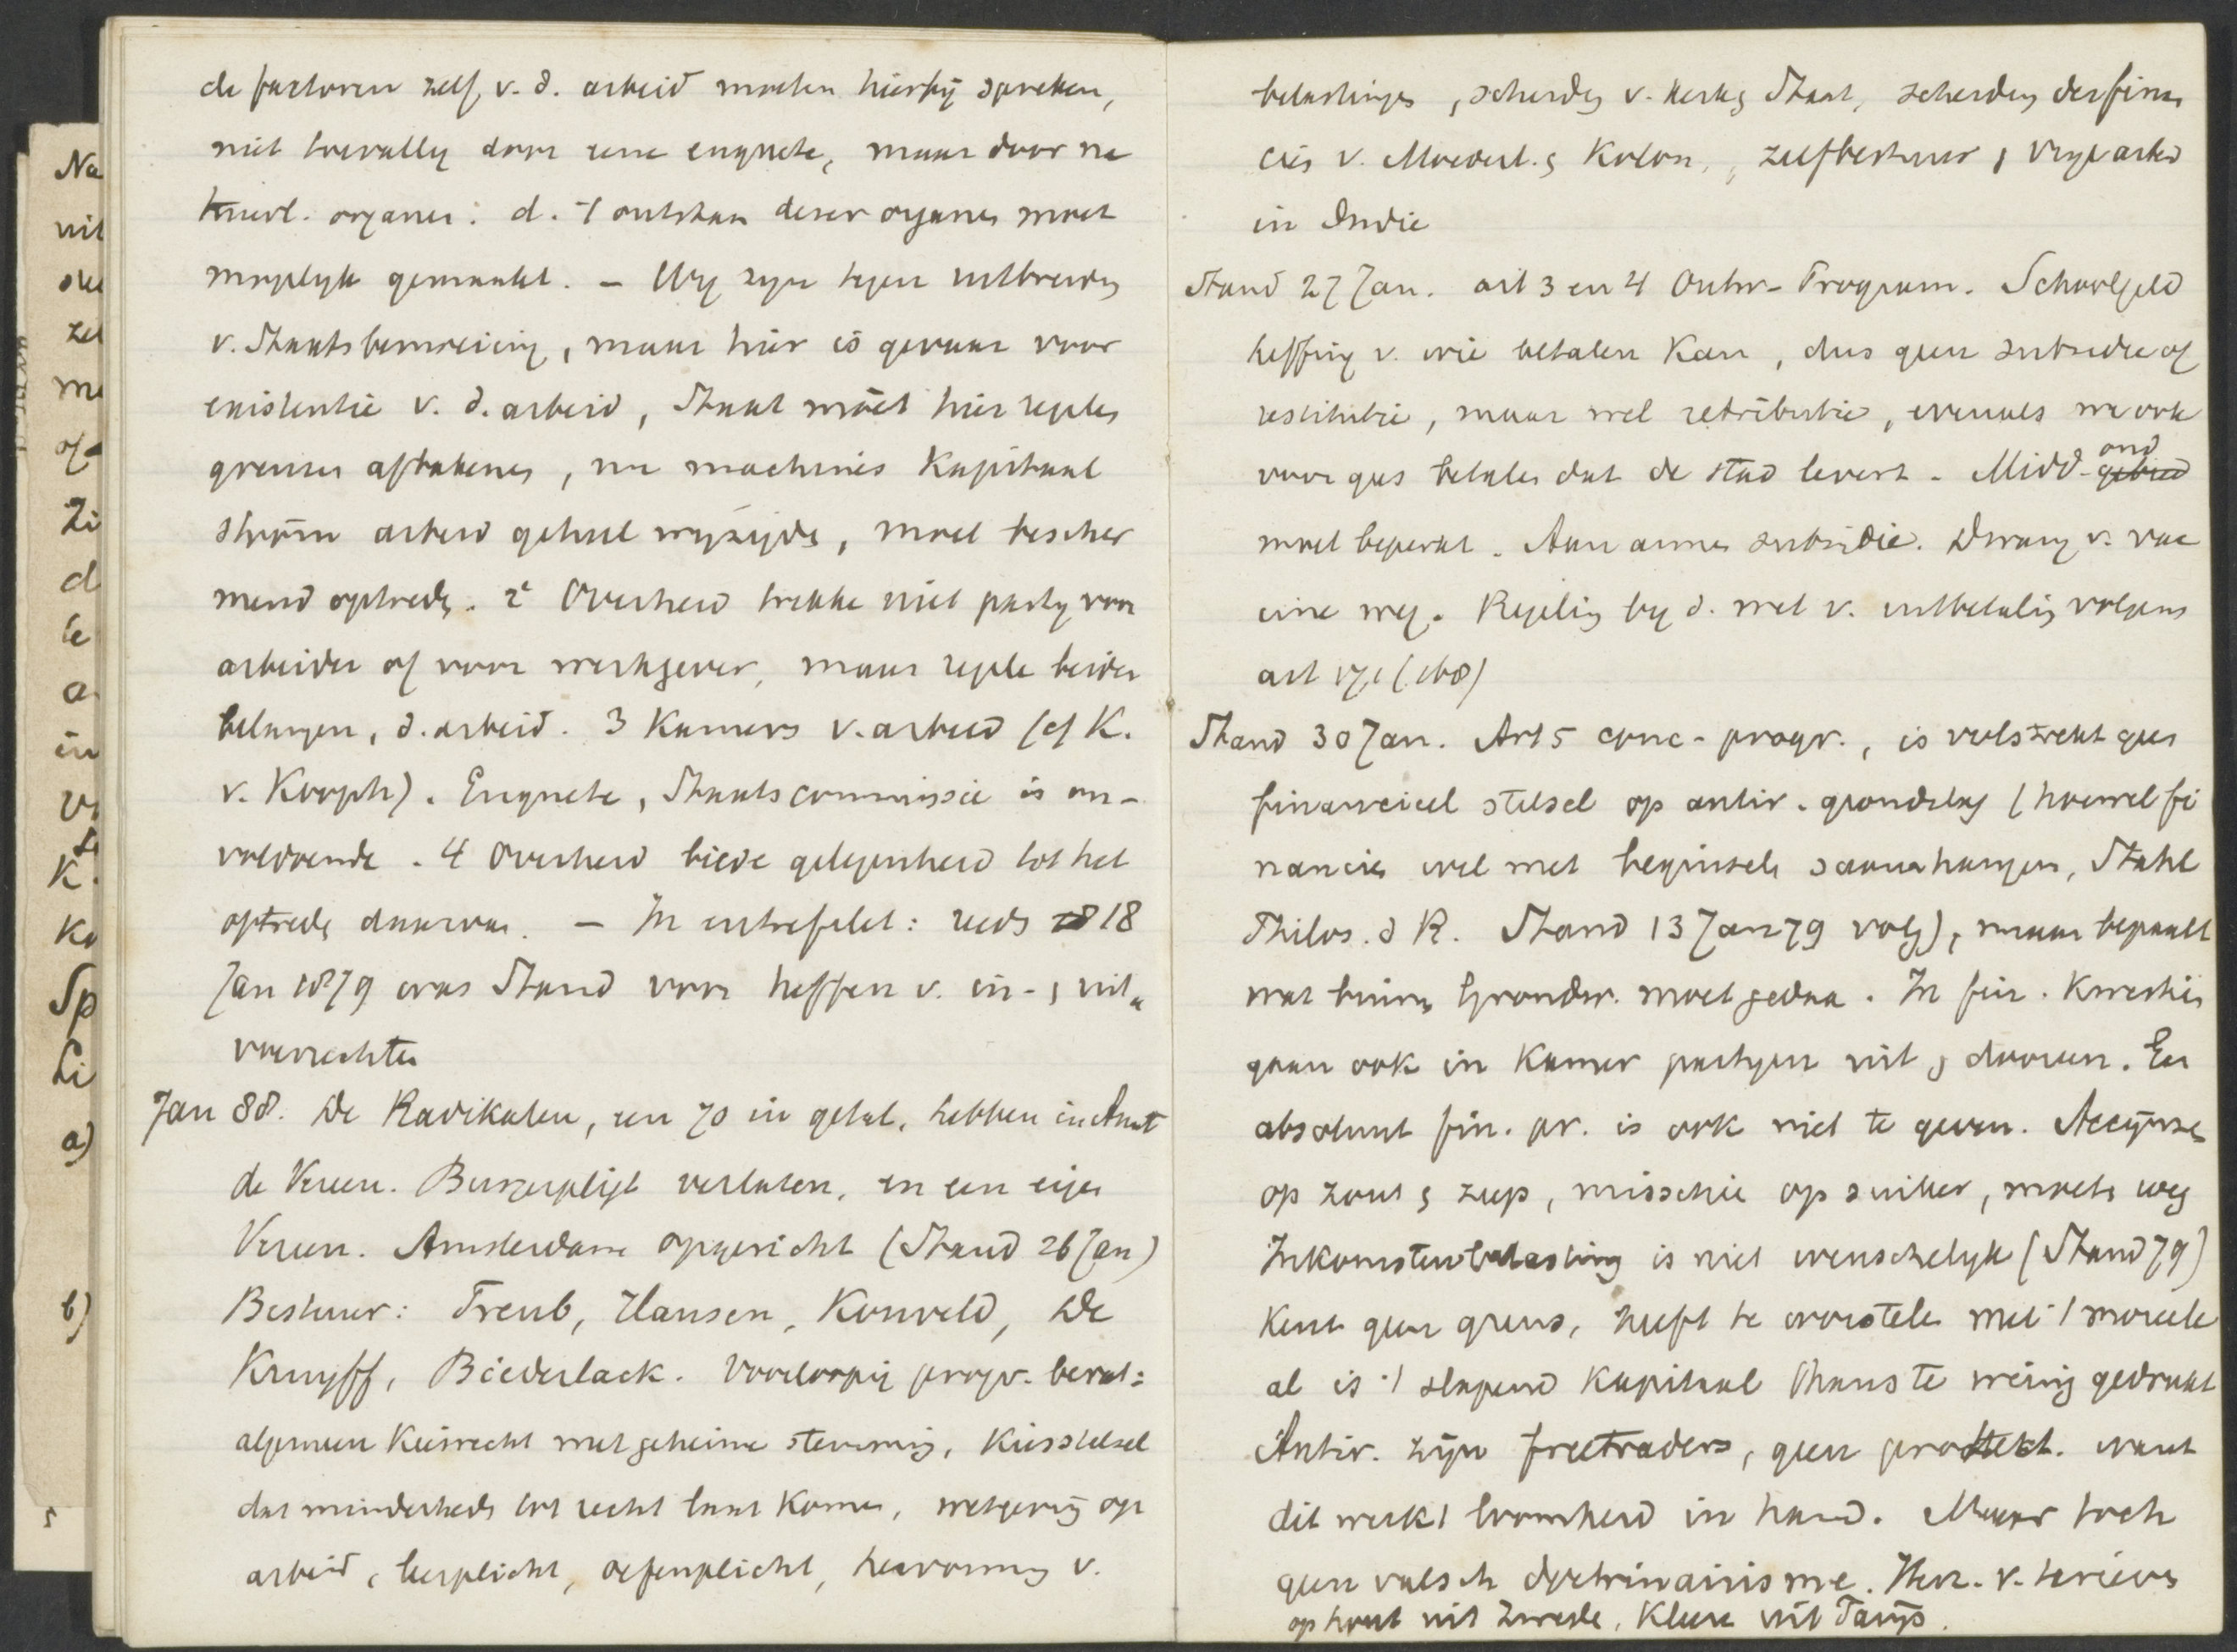 Na
uit
zel
me
Zi
d
te
a
in
K.
Ko
Sp
Li
a)
b)
de factoren zelf v. d. arbeid moeten hierbij spreken,
niet toevallig door eene enquete, maar door na
tuurl. organen. d. 't ontstaan dezer organen moet
mogelyk gemaakt. – Wy zyn tegen uitbreiding
v. Staatsbemoeiing, maar hier is gevaar voor
existentie v. d. arbeid, Staat móet hier regelen
grenzen afbakenen, nu machines kapitaal
stoom arbeid geheel wyzigden, moet bescher
mend optreden. 2e Overheid trekke niet party voor
arbeider of voor werkgever, maar regele beider
belangen, d. arbeid. 3 Kamers v. arbeid (cf K.
v. Kooph). Enquete, Staatscommissie is on-
voldoende. 4 Overheid biede gelegenheid tot het
optreden daarvan. – In entrefilet: reeds 18
Jan 1879 was Stand voor heffen v. in- , uit„
voerrechten
Jan 88. De Radikalen, een 70 in getal, hebben in Amst
de Vereen. Burgerpligt verlaten, en een eigen
Vereen. Amsterdam opgericht (Stand 26 Jan)
Bestuur: Treub, Hansen, Konveld, De
Kruyff, Biederlack. Voorloopig progr. bevat:
algemeen kiesrecht met geheime stemming, kiesstelsel
dat minderheden tot recht laat komen, wetgeving op
arbeid, leerplicht, oefenplicht, hervorming v.
belastingen, scheiding v. kerk & Staat, scheiding der finan
ciën v. Moederl. & Kolon., zelfbestuur , vrye arbeid
in Indie
Stand 27 Jan. art 3 en 4 Ontw-Program. Schoolgeld
heffing v. wie betalen kan, dus geen subsidie of
restitutie, maar wel retributie, evenals we ook
voor gas betalen dat de stad levert. Midd-gebied ond
moet beperkt. Aan armen subsidie. Dwang v. vac
cine weg. Regeling by d. wet v. uitbetaling volgens
art
Stand 30 Jan. Art 5 conc-progr., is volstrekt geen
financieel stelsel op antir. grondslag (hoewel fi
nancien wel met beginselen samenhangen, Stahl
Philos. d R. Stand 13 Jan 79 volg), maar bepaalt
wat binnen Grondw. moet gedaan. In fin. kwestien
gaan ook in Kamer partyen uit & dooreen. Een
absoluut fin. pr. is ook niet te geven. Accijnzen
op zout & zeep, misschien op suiker, moeten weg
Inkomstenbelasting is niet wenschelyk (Stand 79)
Kent geen grens, heeft te worstelen met 't moreele
al is 't slapend kapitaal thans te weinig gedrukt
Antir. zijn freetraders, geen protekt. want
dit werkt loomheid in hand. Maar toch
geen valsch doctrinairisme. Herz. v. tarieven
op hout uit Zweden, kleeren uit Parijs.